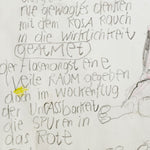 gewagtes denken
mit dem ROSA RAUCH
in die Wirklichkeit
geatmet
der Harmonast eine
Weile RAUM gegeben
doch im Wolkenflug
der Unfassbarkeit
die SPUREN in
das Rote